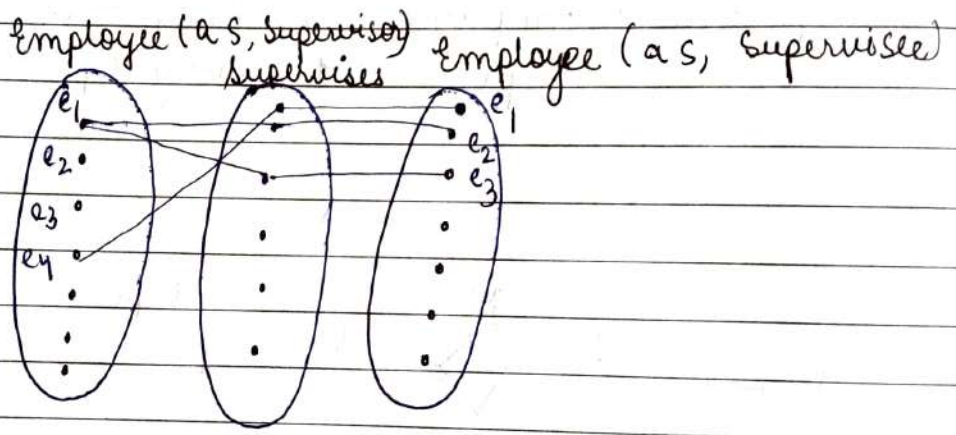 Employee (as, Supervisor)
Supervises
Employee (as, Supervisee)
e1
e2
e3
e4
e1
e2
e3